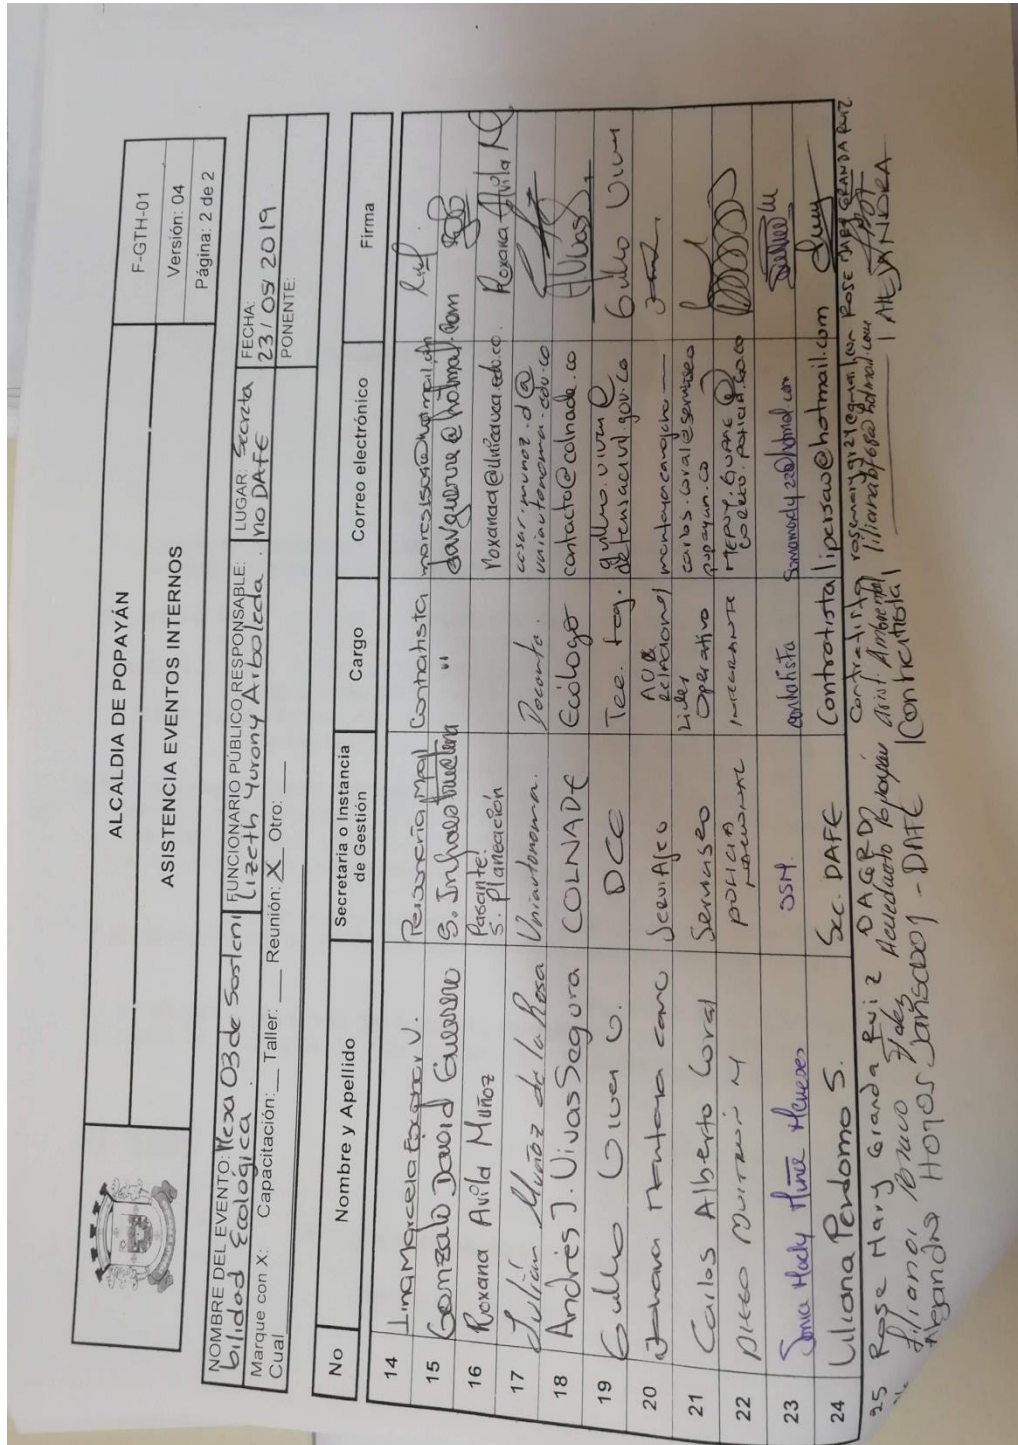 ALCALDIA DE POPAYÁN
ASISTENCIA EVENTOS INTERNOS
F-GTH-01
Versión: 04
Página: 2 de 2
NOMBRE DEL EVENTO: Mesa 03 de Sosteni
bilidad Ecológica.
FUNCIONARIO PÚBLICO RESPONSABLE:
Lizeth Yurany Arboleda.
LUGAR: Secreta
no DAFE
FECHA:
23/05/2019
Marque con X: Capacitación:__ Taller: __ Reunión: X Otro: __
Cual
PONENTE:
No Nombre y Apellido Secretaria o Instancia de Gestión Cargo Correo electrónico Firma
14 Lina Marcela V. Personería Mpal Contratista
15 Gonzalo David Guerrero S. Infraestructura " davguerre@hotmail.com
16 Roxana Avila Muñoz Pasante S. Planeación roxanaa@unicauca.edu.co. Roxana Avila
17 Julián Muñoz de la Rosa Uniautonoma. Docente. cesar.munoz.d@uniautonoma.edu.co
18 Andrés J. Vivas Segura COLNADE Ecólogo contacto@colnade.co
19 DCC Tec.
20 Relacional
21 Carlos Alberto Coral Serviaseo Lider Operativo carlos.coral@serviaseo popayan.co
22 Diego M POLICIA NACIONAL INTEGRANTE
23 Sonia Mady Muñoz Meneses SSM. contratista
24 Liliana Perdomo S. Sec. DAFE Contratista lipersao@hotmail.com
25 Rose Mary Granda Ruiz DAGRD Contratista ROSE MARY GRANDA RUIZ
Liliana Bravo Acueducto Popayán Asist. Ambiental
Alejandra Hoyos Sandoval - DAFE Contratista ALEJANDRA